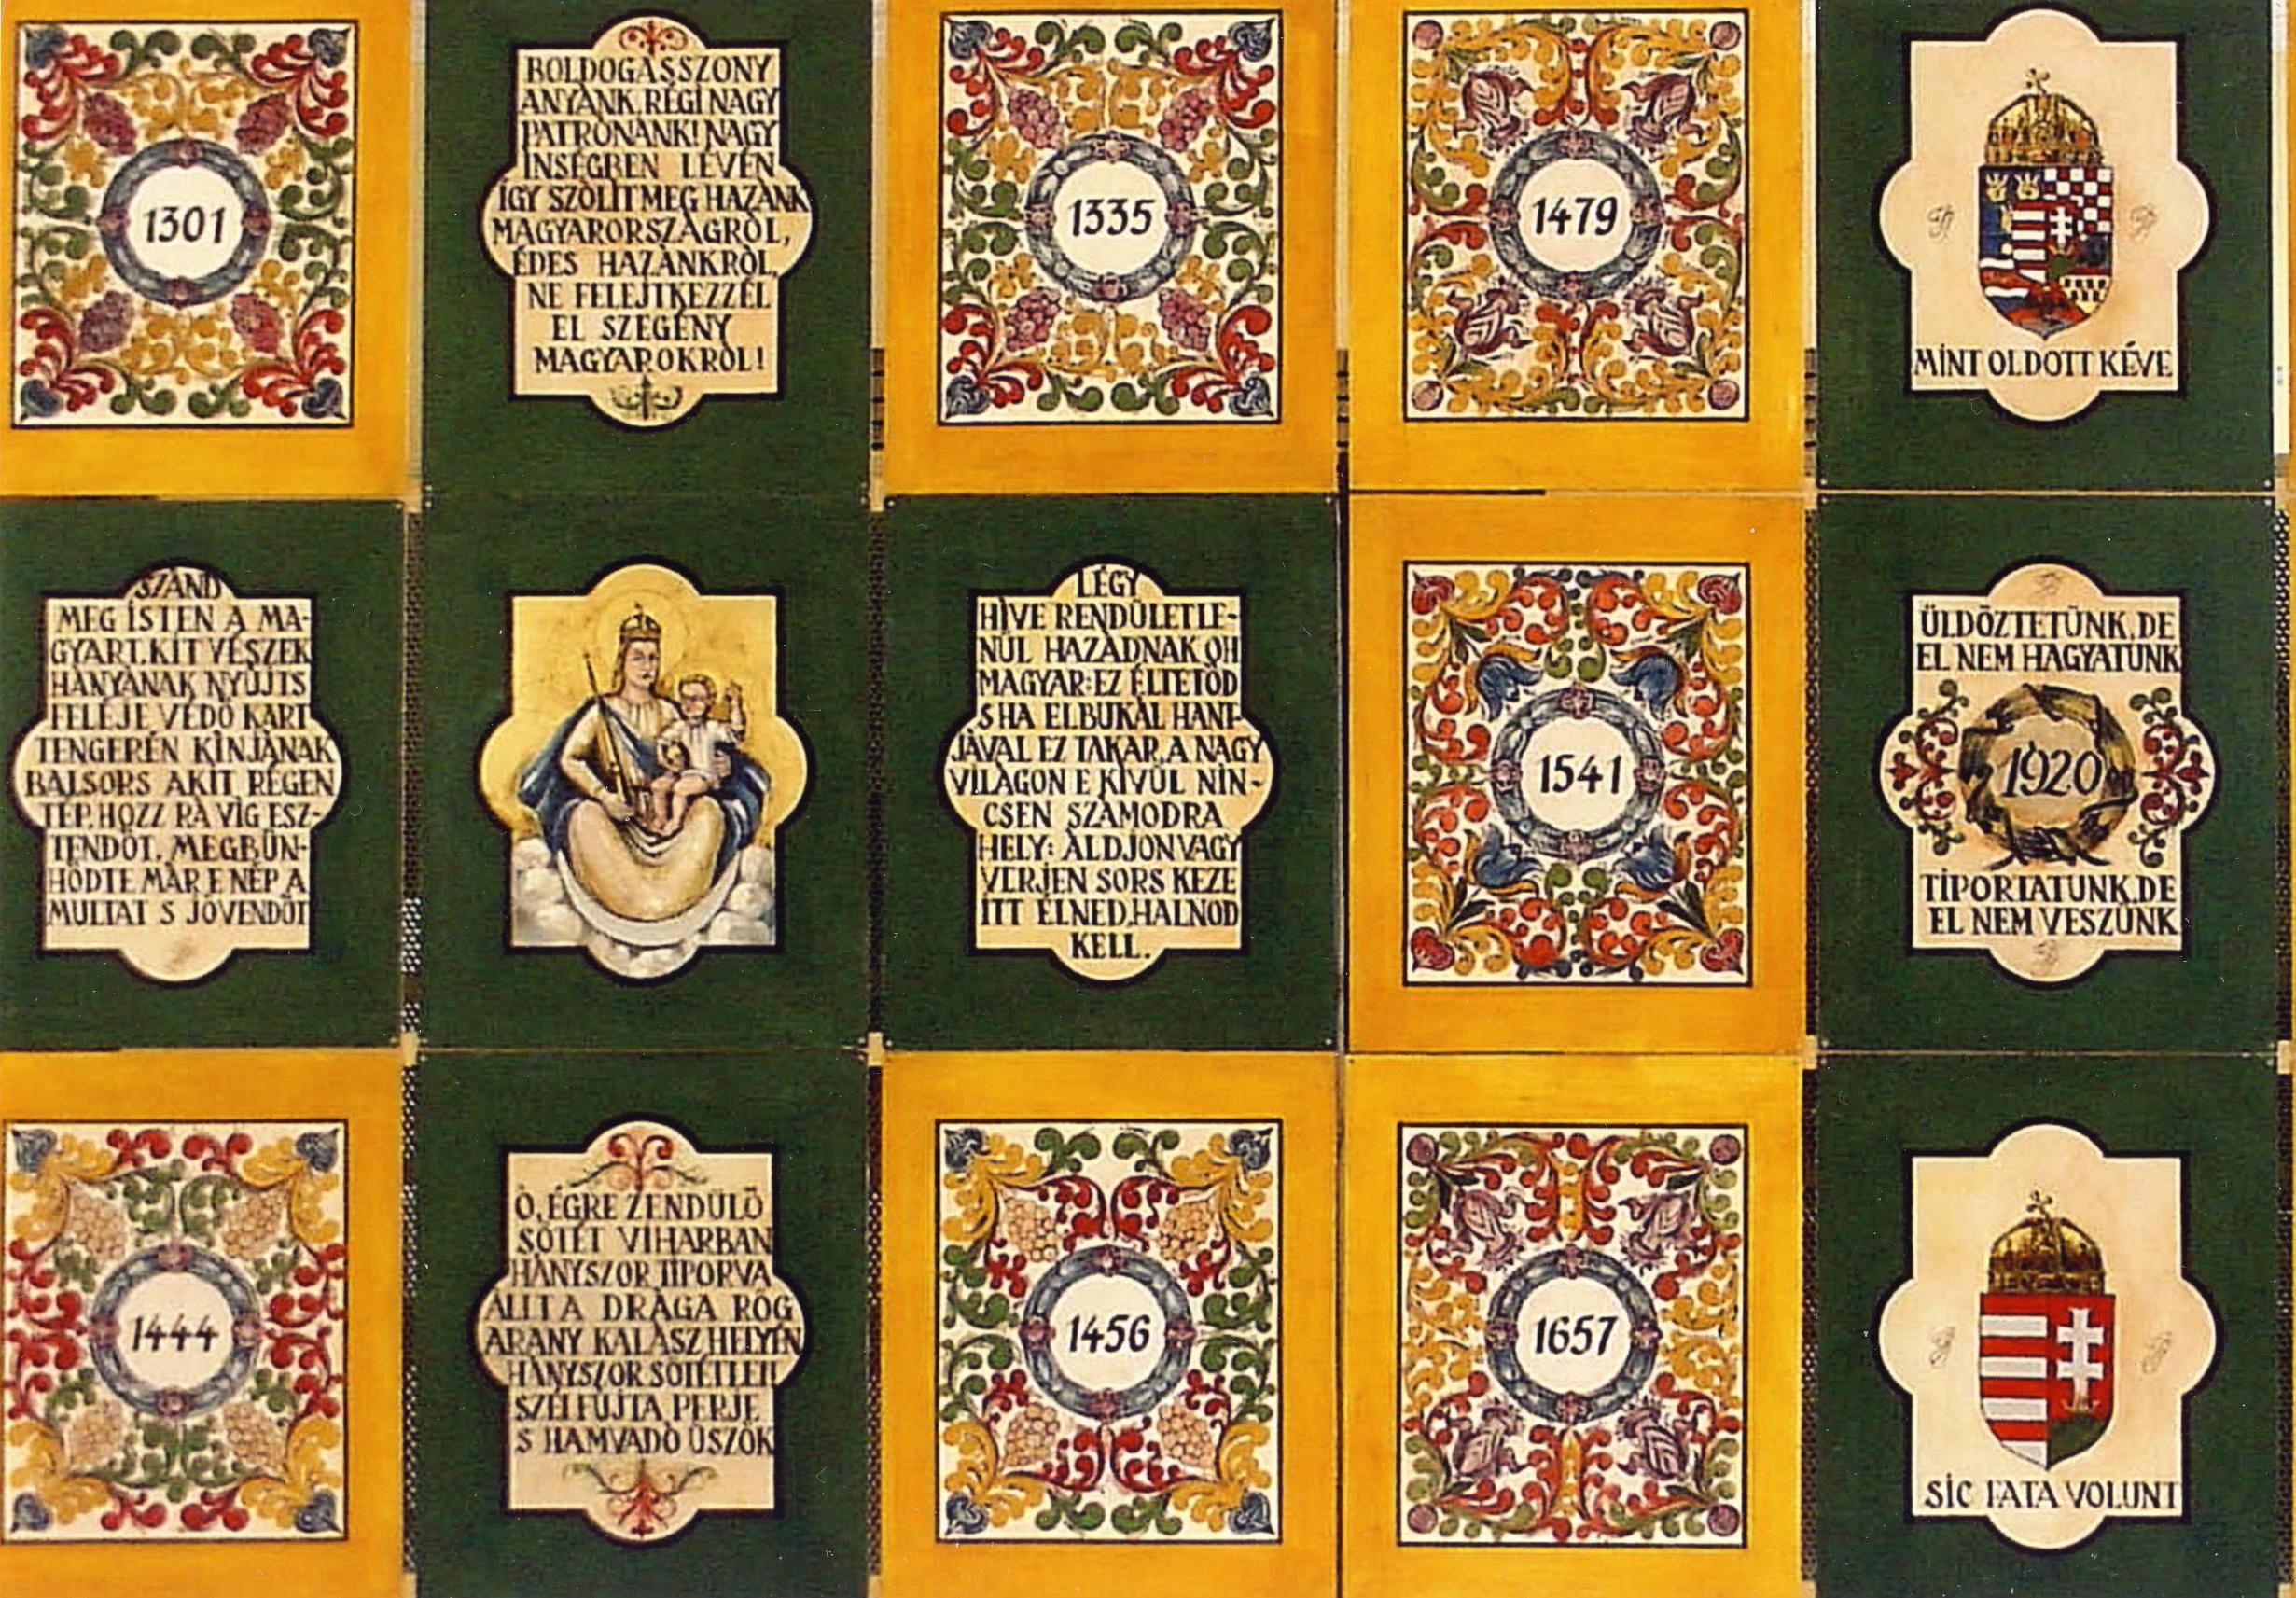 1301
BOLDOGASSZONY
ANYÁNK, RÉGI NAGY
PATRÓNÁNK! NAGY
ÍNSÉGBEN LÉVÉN
ÍGY SZÓLÍT MEG HAZÁNK
MAGYARORSZÁGRÓL,
ÉDES HAZÁNKRÓL,
NE FELEJTKEZZÉL
EL SZEGÉNY
MAGYAROKRÓL!
1335
1479
MINT OLDOTT KÉVE
SZÁND
MEG ISTEN A MA-
GYART, KIT VÉSZEK
HÁNYÁNAK NYÚJTS
FELÉJE VÉDŐ KART
TENGERÉN KÍNJÁNAK
BALSORS AKIT RÉGEN
TÉP, HOZZ RÁ VÍG ESZ-
TENDŐT, MEGBŰN-
HŐDTE MÁR E NÉP A
MULTAT S JÖVENDŐT
LÉGY
HÍVE RENDÜLETLE-
NÜL HAZÁDNAK OH
MAGYAR: EZ ÉLTETŐD
S HA ELBUKÁL HANT-
JÁVAL EZ TAKAR, A NAGY
VILÁGON E KÍVÜL NIN-
CSEN SZÁMODRA
HELY: ÁLDJON VAGY
VERJEN SORS KEZE
ITT ÉLNED, HALNOD
KELL.
1541
ÜLDÖZTETÜNK, DE
EL NEM HAGYATUNK
1920
TIPORTATUNK, DE
EL NEM VESZÜNK
1444
Ó, ÉGRE ZENDÜLŐ
SÖTÉT VIHARBAN
HÁNYSZOR TIPORVA
ÁLLT A DRÁGA RÖG
ARANY KALÁSZ HELYÉN
HÁNYSZOR SÖTÉTLETT
SZÉLFUJTA PERJE
S HAMVADÓ ÜSZÖK
1456
1657
SIC FATA VOLUNT